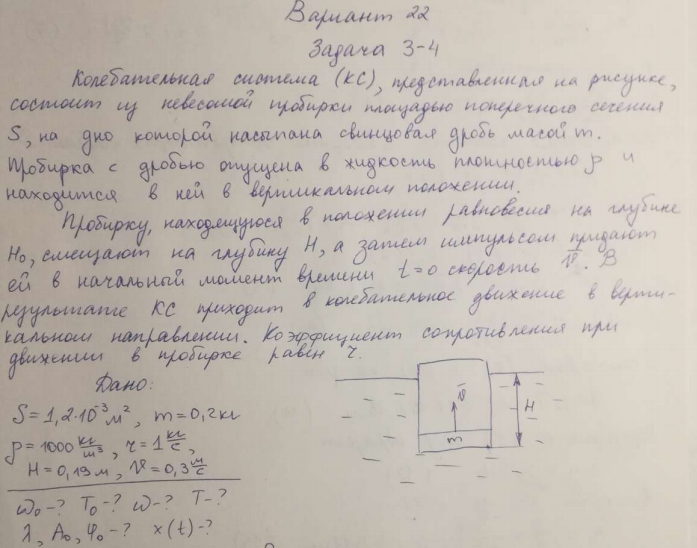 Вариант 22
Задача 3-4
Колебательная система (КС), представленная на рисунке,
состоит из невесомой пробирки площадью поперечного сечения
S, на дно которой насыпана свинцовая дробь масой m.
Пробирка с дробью опущена в жидкость плотностью ρ и
находится в ней в вертикальном положении.
Пробирку, находящуюся в положении равновесия на глубине
H₀, смещают на глубину H, а затем импульсом придают
ей в начальный момент времени t=0 скорость v̄. В
результате КС приходит в колебательное движение в верти-
кальном направлении. Коэффициент сопротивления при
движении в пробирке равен r.
Дано:
S=1,2·10⁻³м², m=0,2кг
ρ=1000 кг/м³, r=1 кг/с,
H=0,19м, v=0,3 м/с
ω₀-? T₀-? ω-? T-?
λ, A₀, φ₀-? x(t)-?
v̄
H
m